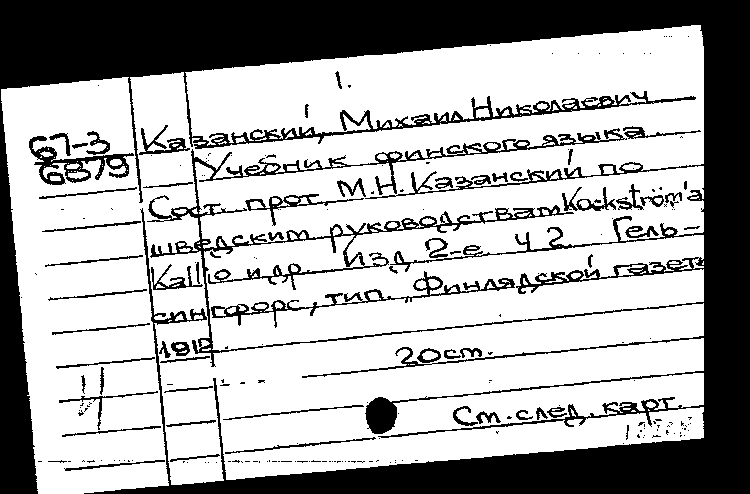 1.
67-3
6879
Казанский, Михаил Николаевич
Учебник финского языка
Сост. прот. М.Н. Казанский по
шведским руководствам Kockström'a
Kallio и др. Изд. 2-е. Ч 2 Гель-
сингфорс, тип. „Финлядской газеты
20 ст.
Ч
См. след. карт.